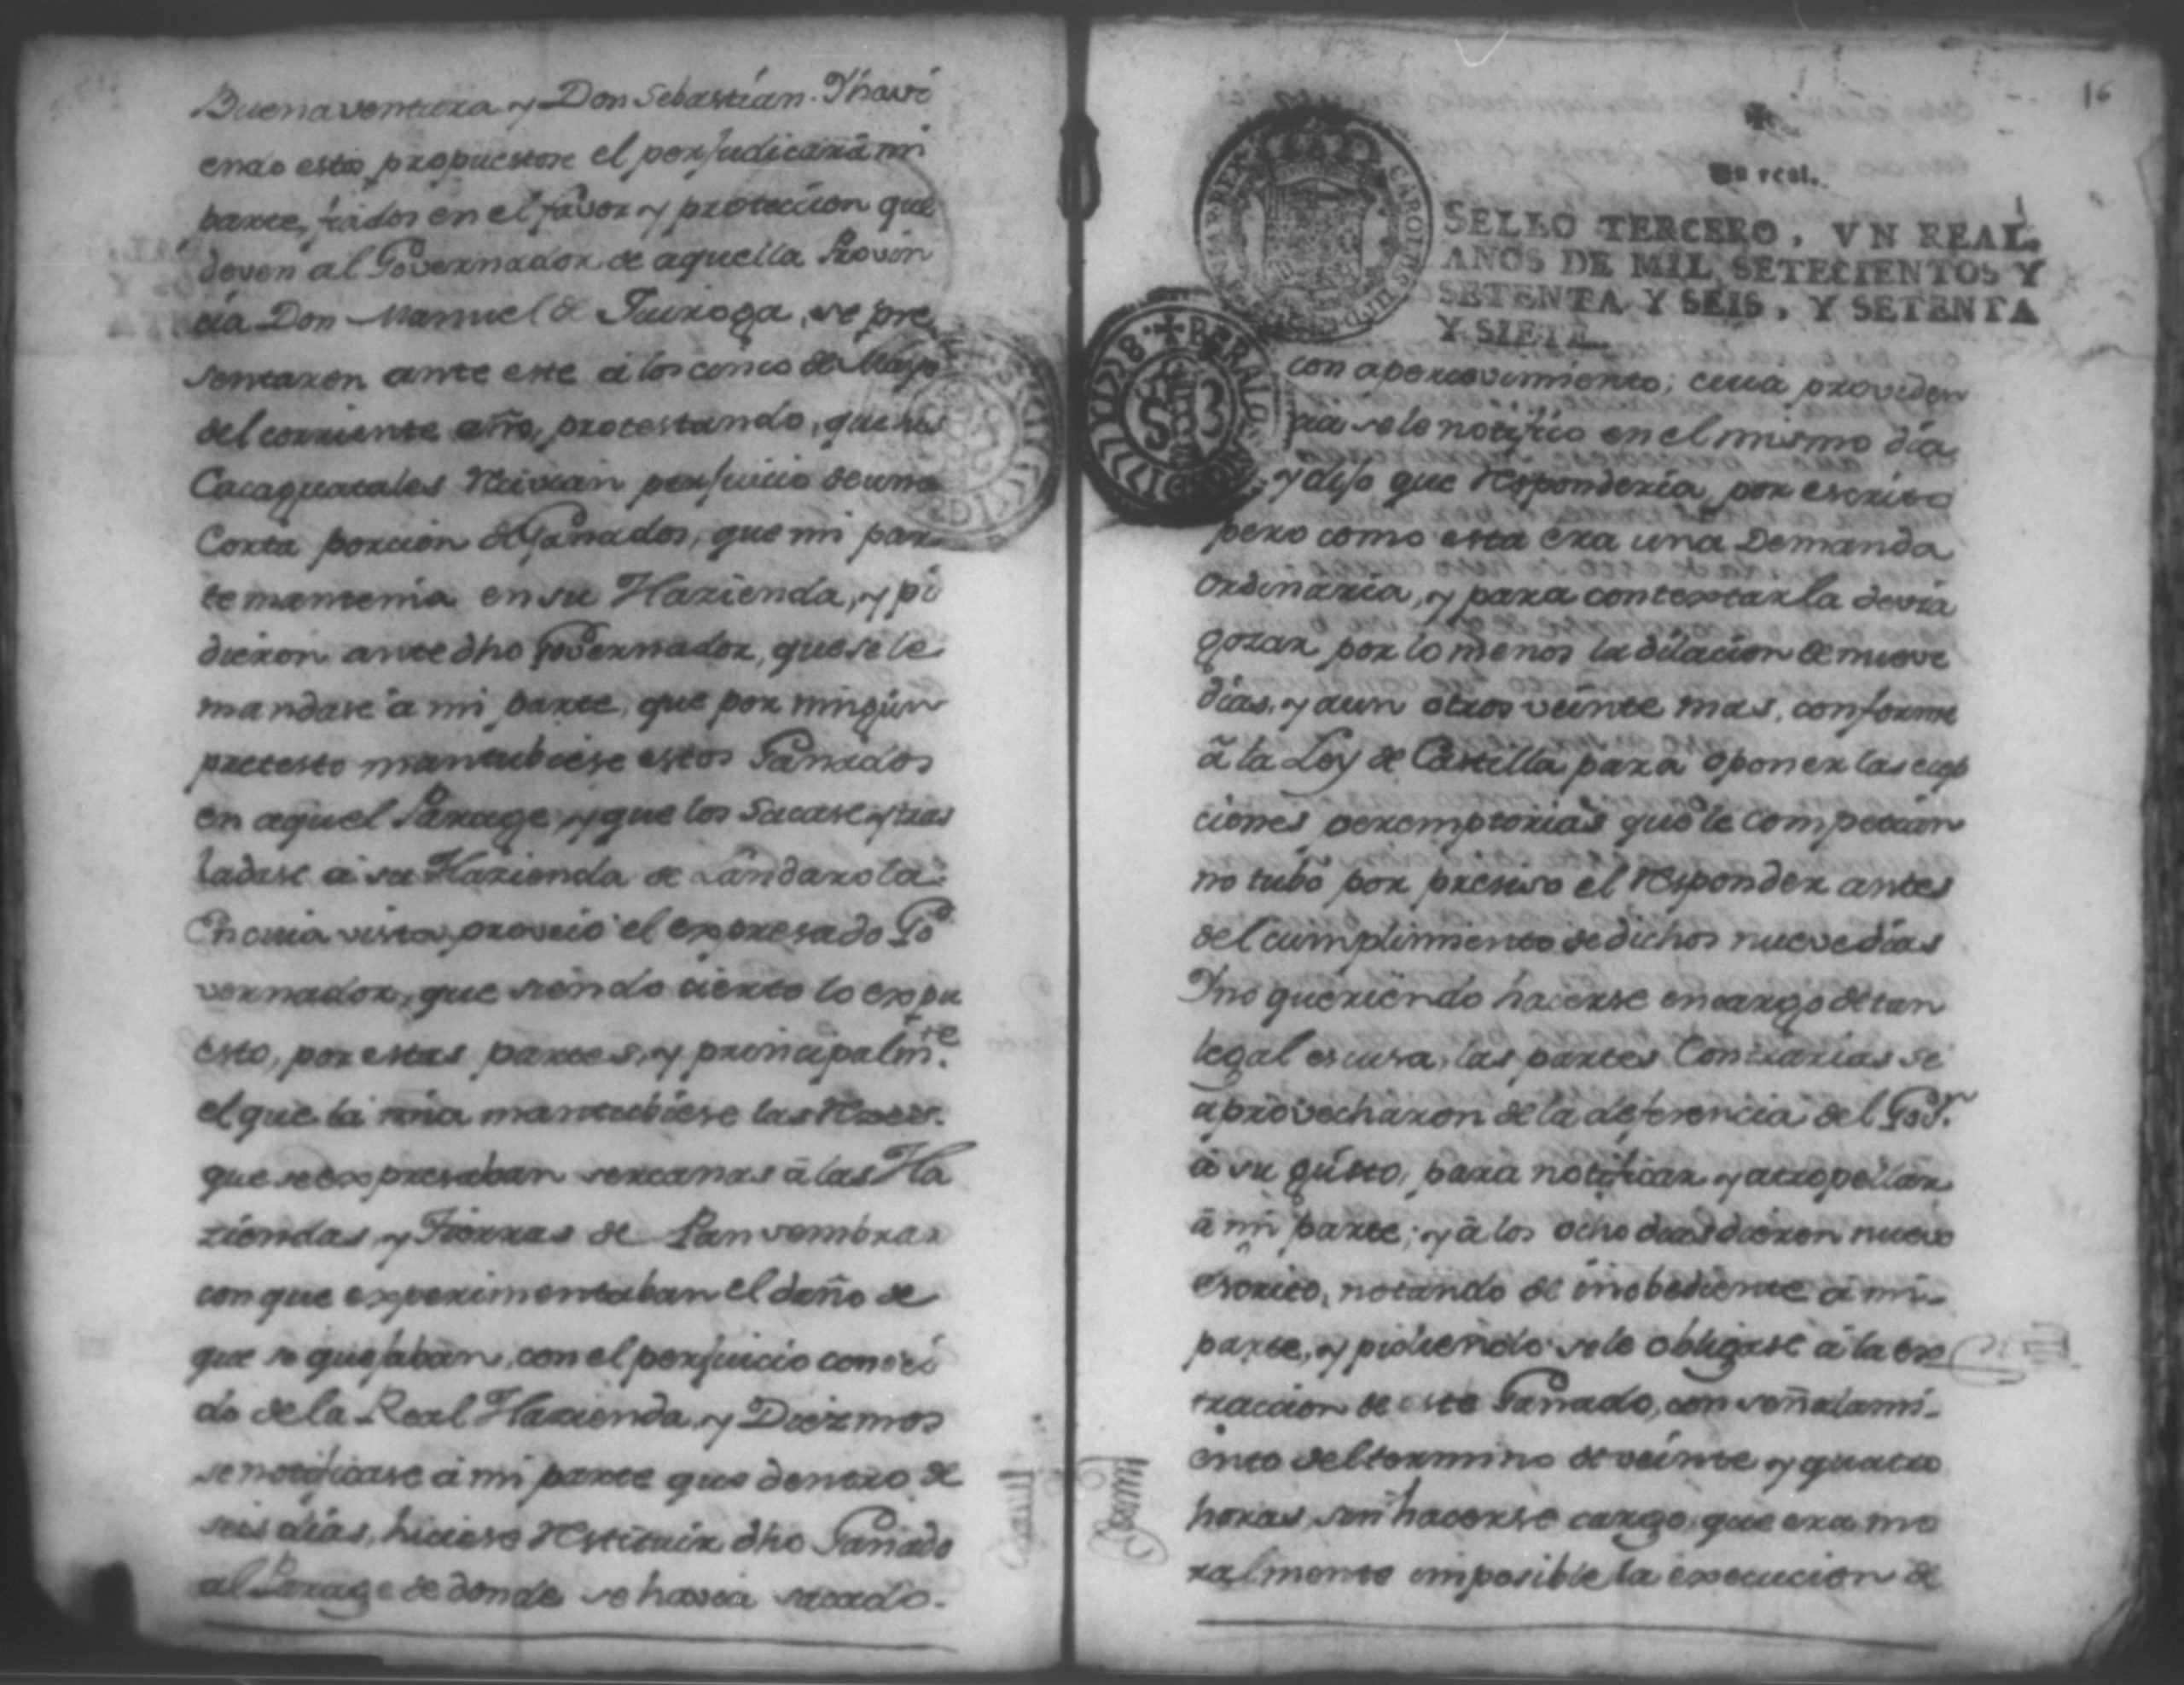 Buenaventura y Don Sebastián. Y havi
endo estos propuestose el perjudicar â mi
parte, fiados en el favor y proteccion que
deven al Governador de aquella Provin
cia Don Manuel de Quiroga, se pre
sentaron ante este â los cinco de Mayo
del corriente año, protestando, que sus
Cacaguatales recivian perjuicio de una
Corta porcion de Ganados, que mi par
te mantenia en su Hazienda, y pi
dieron ante dho Governador, que se le
mandase â mi parte, que por ningun
pretesto mantubiese estos Ganados
en aquel Parage, y que los sacase y tras
ladase â su Hazienda de
En cuia vista proveió el expresado Go
vernador, que siendo cierto lo expu
esto, por estas partes, y principalmte.
el que la mia mantubiese las Reses.
que se expresaban sercanas â las Ha
ziendas, y Tierras de Pan sembrar
con que experimentaban el daño de
que se quejaban, con el perjuicio conoci
do de la Real Hazienda, y Diezmos
se notificase â mi parte que dentro de
seis dias, hiciese restituir dho Ganado
al Parage de donde se havia sacado.
16
Un real.
SELLO TERCERO, VN REAL,
AÑOS DE MIL SETECIENTOS Y
SETENTA Y SEIS, Y SETENTA
Y SIETE.
con apercevimiento; cuia providen
cia se le notificó en el mismo dia
y dijo que responderia por escrito
pero como esta era una Demanda
ordinaria, y para contextarla devia
gozar por lo menos la dilacion de nueve
dias, y aun otros veinte mas, conforme
â la Ley de Castilla para oponer las excep
ciones peremptorias que le competian
no tubo por preciso el responder antes
del cumplimiento de dichos nueve dias
Y no queriendo hacerse encargo de tan
legal escusa, las partes Contrarias se
aprovecharon de la deferencia del Govr.
â su gusto, para notificar y atropellar
â mi parte; y â los ocho dias dieron nuevo
escrito, notando de inobediente â mi
parte, y pidiendo se le obligase â la ex
traccion de este Ganado, con señalami-
ento del termino de veinte y quatro
horas, sin hacerse cargo, que era mo
ralmente imposible la execucion de